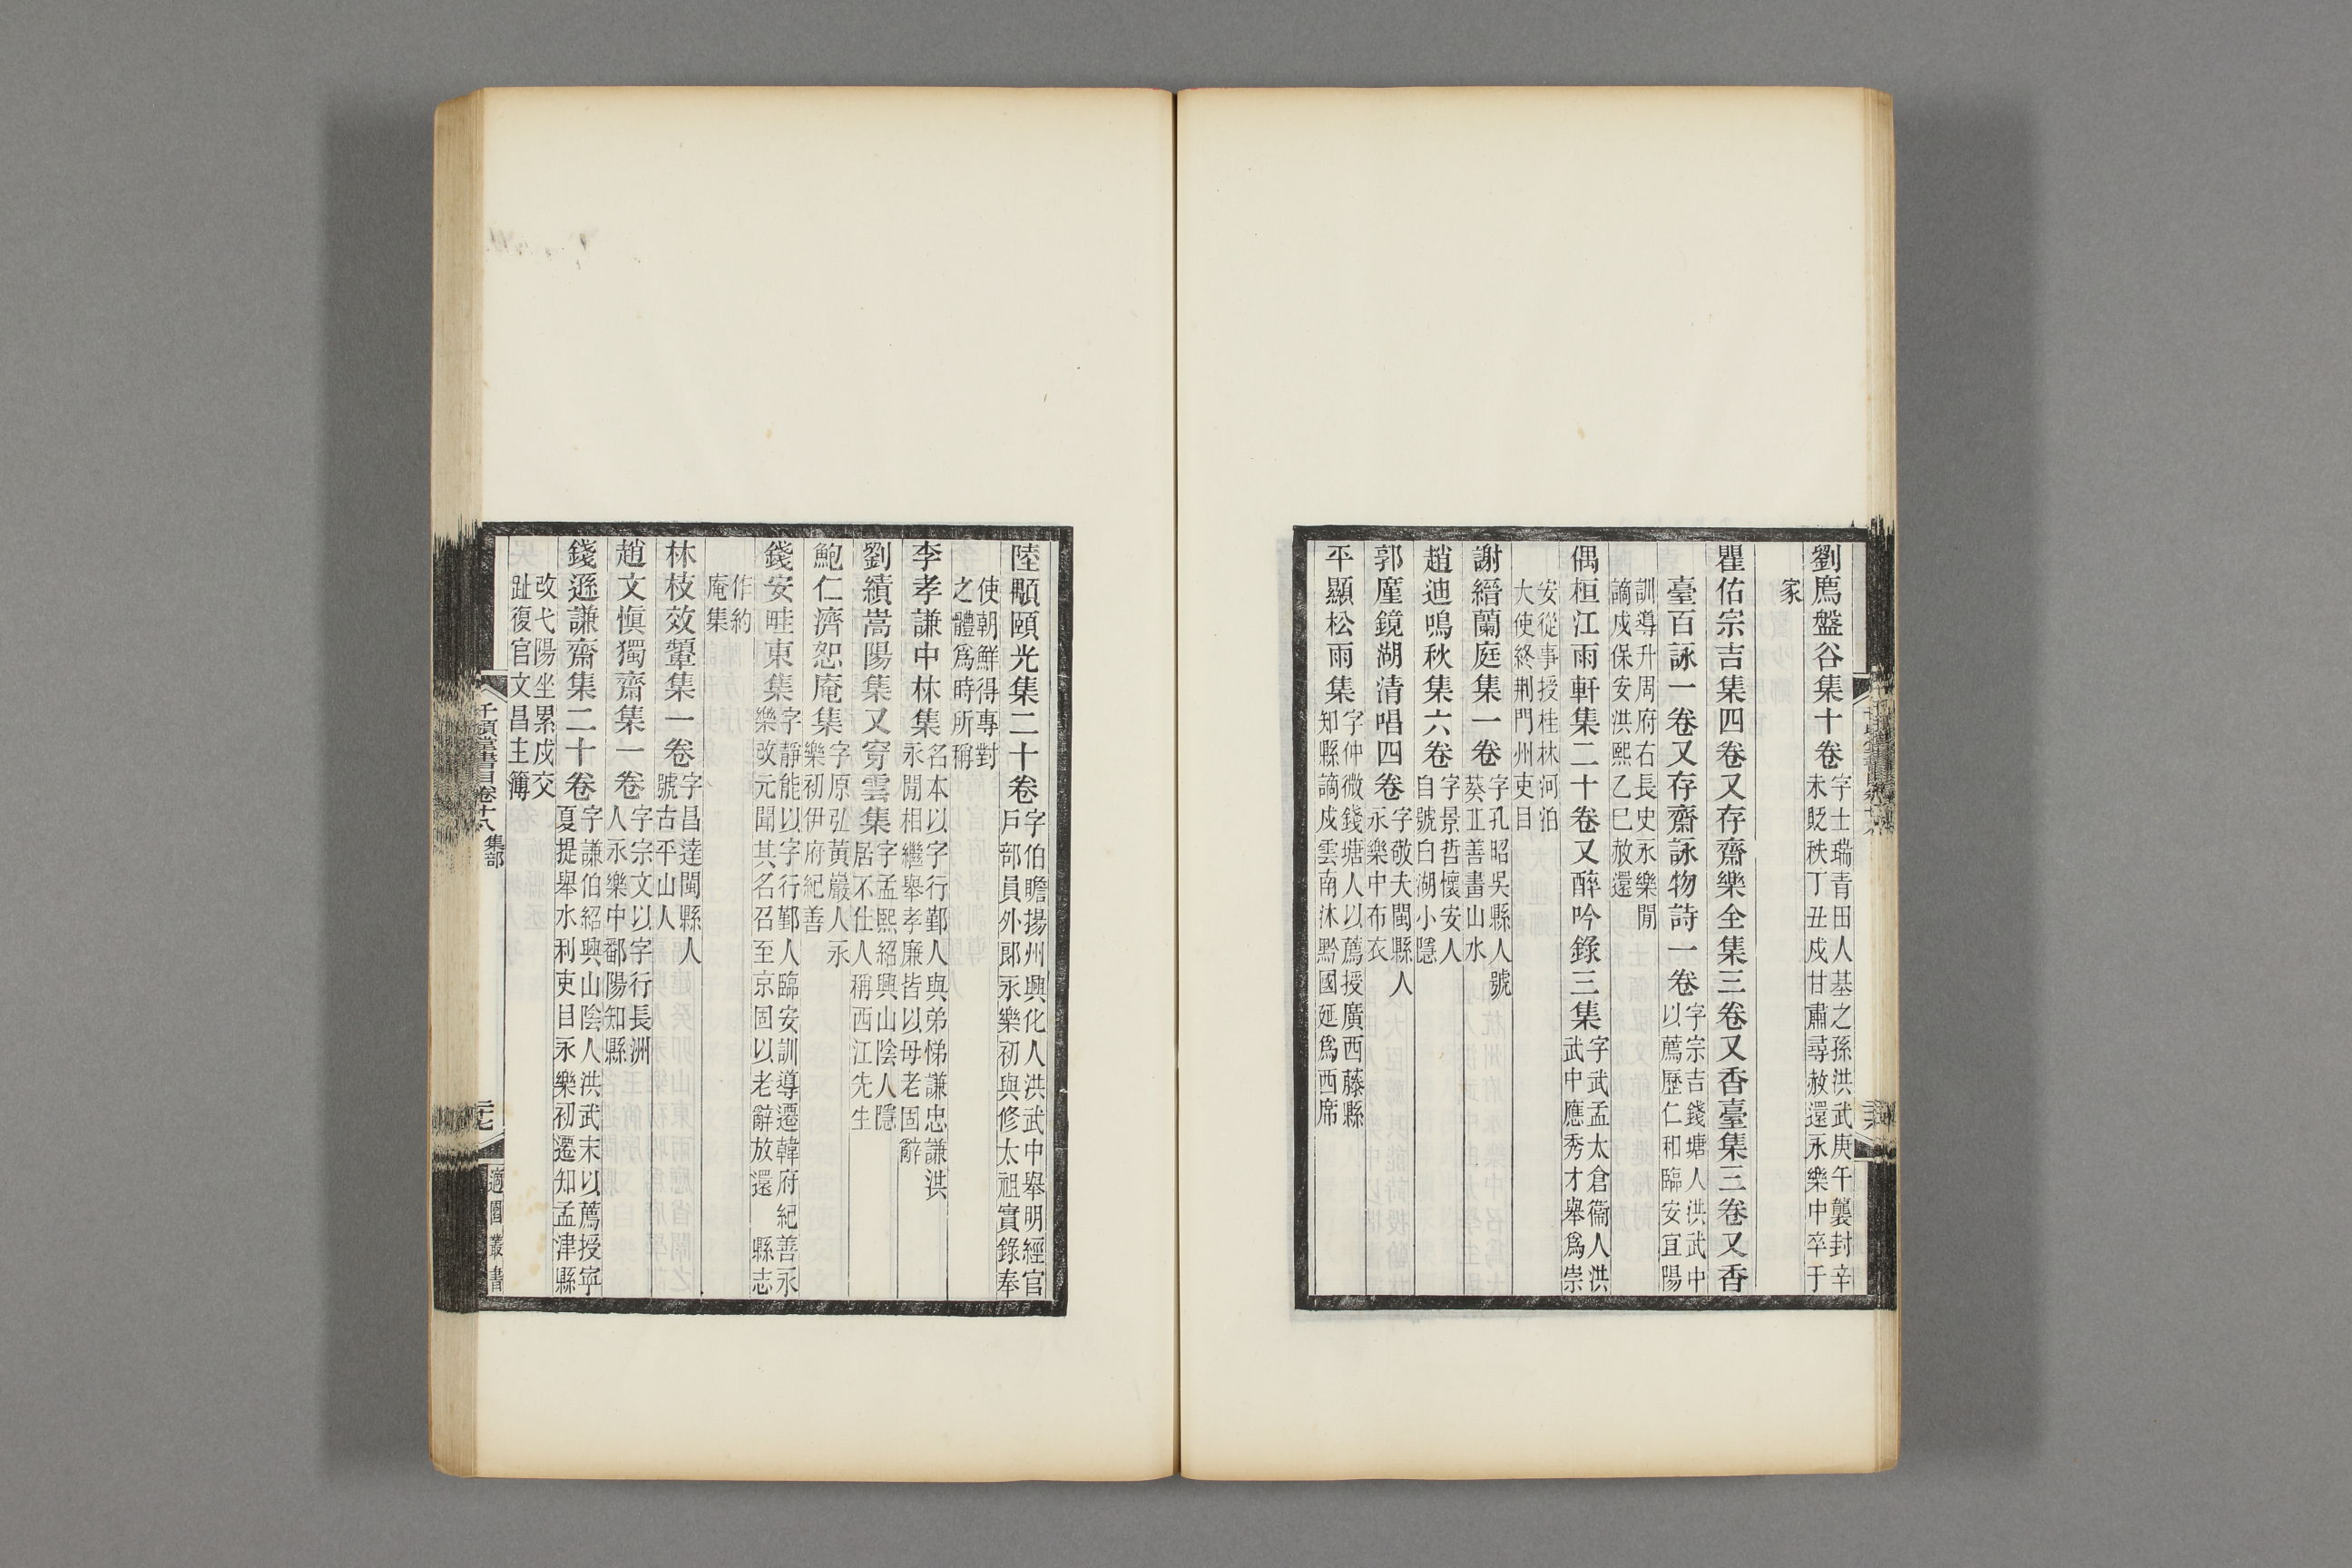 劉廌盤谷集十卷字士瑞青田人基之孫洪武庚午襲封辛
未貶秩丁丑戍甘肅尋赦還永樂中卒于
家
瞿佑宗吉集四卷又存齋樂全集三卷又香臺集三卷又香
臺百詠一卷又存齋詠物詩一卷字宗吉錢塘人洪武中
以薦歷仁和臨安宜陽
訓導升周府右長史永樂閒
謫戍保安洪熙乙巳赦還
偶桓江雨軒集二十卷又醉吟錄三集字武孟太倉衞人洪
武中應秀才舉爲崇
安從事授桂林河泊
大使終荆門州吏目
謝縉蘭庭集一卷字孔昭吳縣人號
葵丘善畫山水
趙迪鳴秋集六卷字景哲懷安人
自號白湖小隱
郭廑鏡湖清唱四卷字敬夫閩縣人
永樂中布衣
平顯松雨集字仲微錢塘人以薦授廣西藤縣
知縣謫戍雲南沐黔國延爲西席
陸顒頤光集二十卷字伯瞻揚州興化人洪武中舉明經官
戶部員外郞永樂初與修太祖實錄奉
使朝鮮得專對
之體爲時所稱
李孝謙中林集名本以字行鄞人與弟悌謙忠謙洪
永閒相繼舉孝廉皆以母老固辭
劉績嵩陽集又穿雲集字孟熙紹興山陰人隱
居不仕人稱西江先生
鮑仁濟恕庵集字原弘黃巖人永
樂初伊府紀善
錢安畦東集字靜能以字行鄞人臨安訓導遷韓府紀善永
樂改元聞其名召至京固以老辭放還 縣志
作約
庵集
林枝效顰集一卷字昌達閩縣人
號古平山人
趙文愼獨齋集一卷字宗文以字行長洲
人永樂中鄱陽知縣
錢遜謙齋集二十卷字謙伯紹興山陰人洪武末以薦授寧
夏提舉水利吏目永樂初遷知孟津縣
改弋陽坐累戍交
趾復官文昌主簿
千頃堂書目卷十八 集部
二十七
適園叢書